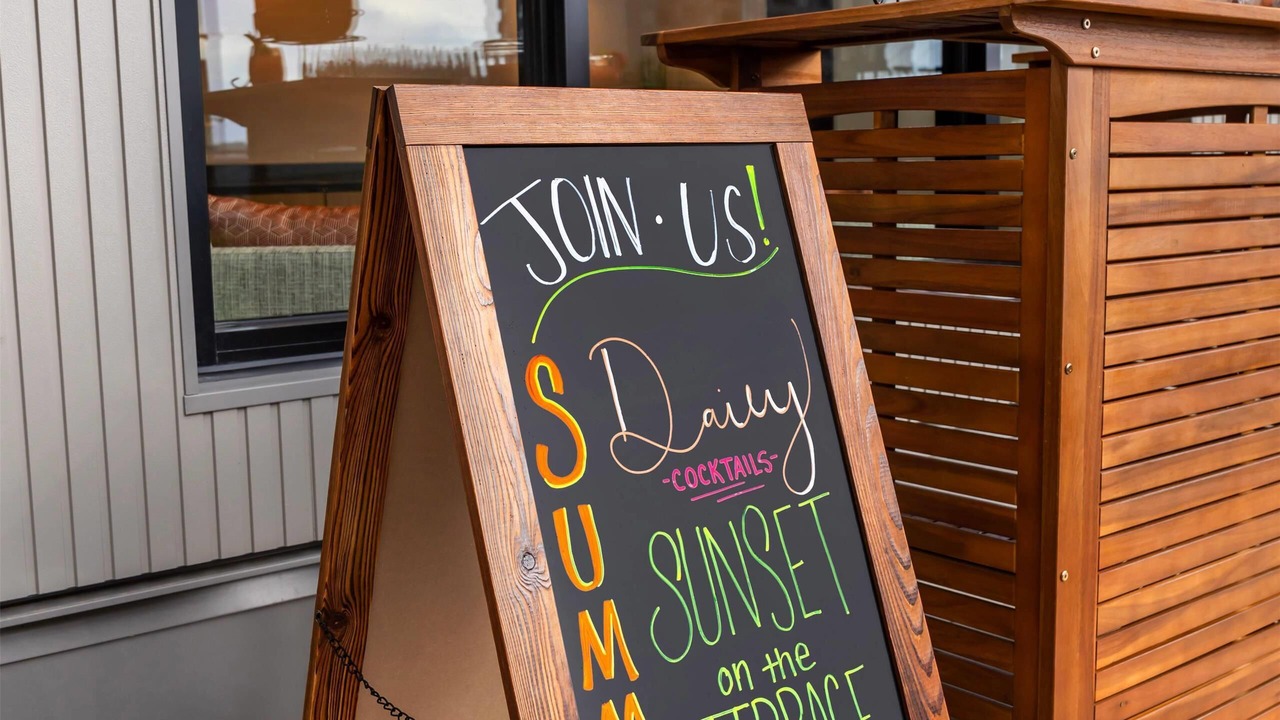 JOIN · US!
Daily
-COCKTAILS-
SUNSET
on the
TERRACE
SUMM